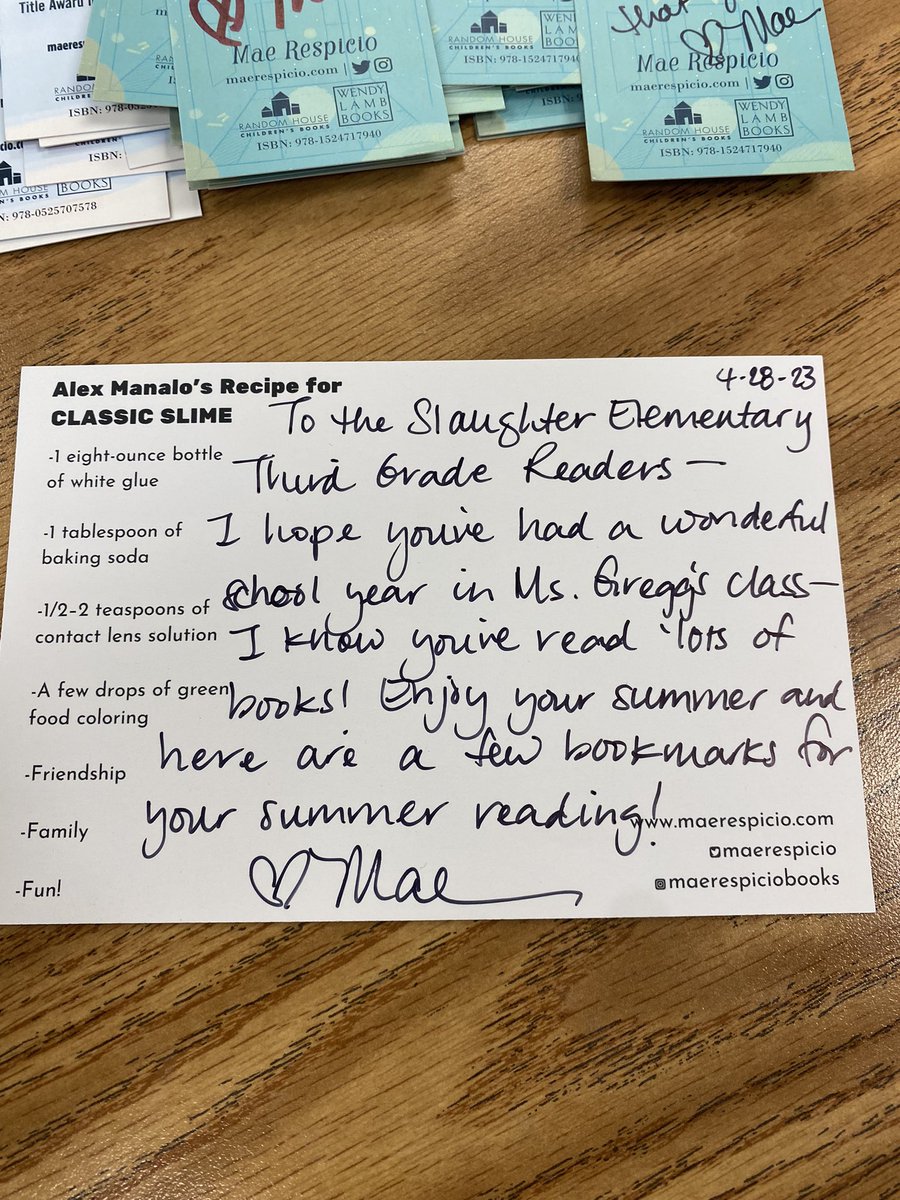 Title Award
maeres
RANDOM
CHILDREN'S
ISBN: 978-0525
ISBN:
BOOKS
CHILDREN'S BOOKS
N: 978-0525707578
Mae Respicio
maerespicio.com |
RANDOM HOUSE
CHILDREN'S BOOKS
WENDY
LAMB
BOOKS
ISBN: 978-1524717940
RANDOM HOUSE
CHILDREN'S BOOKS
ISBN: 978-1524717940
that
♡ Mae
Mae Respicio
maerespicio.com |
RANDOM HOUSE
CHILDREN'S BOOKS
WENDY
LAMB
BOOKS
ISBN: 978-1524717940
Alex Manalo's Recipe for
CLASSIC SLIME
-1 eight-ounce bottle
of white glue
-1 tablespoon of
baking soda
-1/2–2 teaspoons of
contact lens solution
-A few drops of green
food coloring
-Friendship
-Family
-Fun!
4-28-23
To the Slaughter Elementary
Third Grade Readers—
I hope you've had a wonderful
school year in Ms. Gregg's class—
I know you've read lots of
books! Enjoy your summer and
here are a few bookmarks for
your summer reading!
♡ Mae
www.maerespicio.com
maerespicio
maerespiciobooks